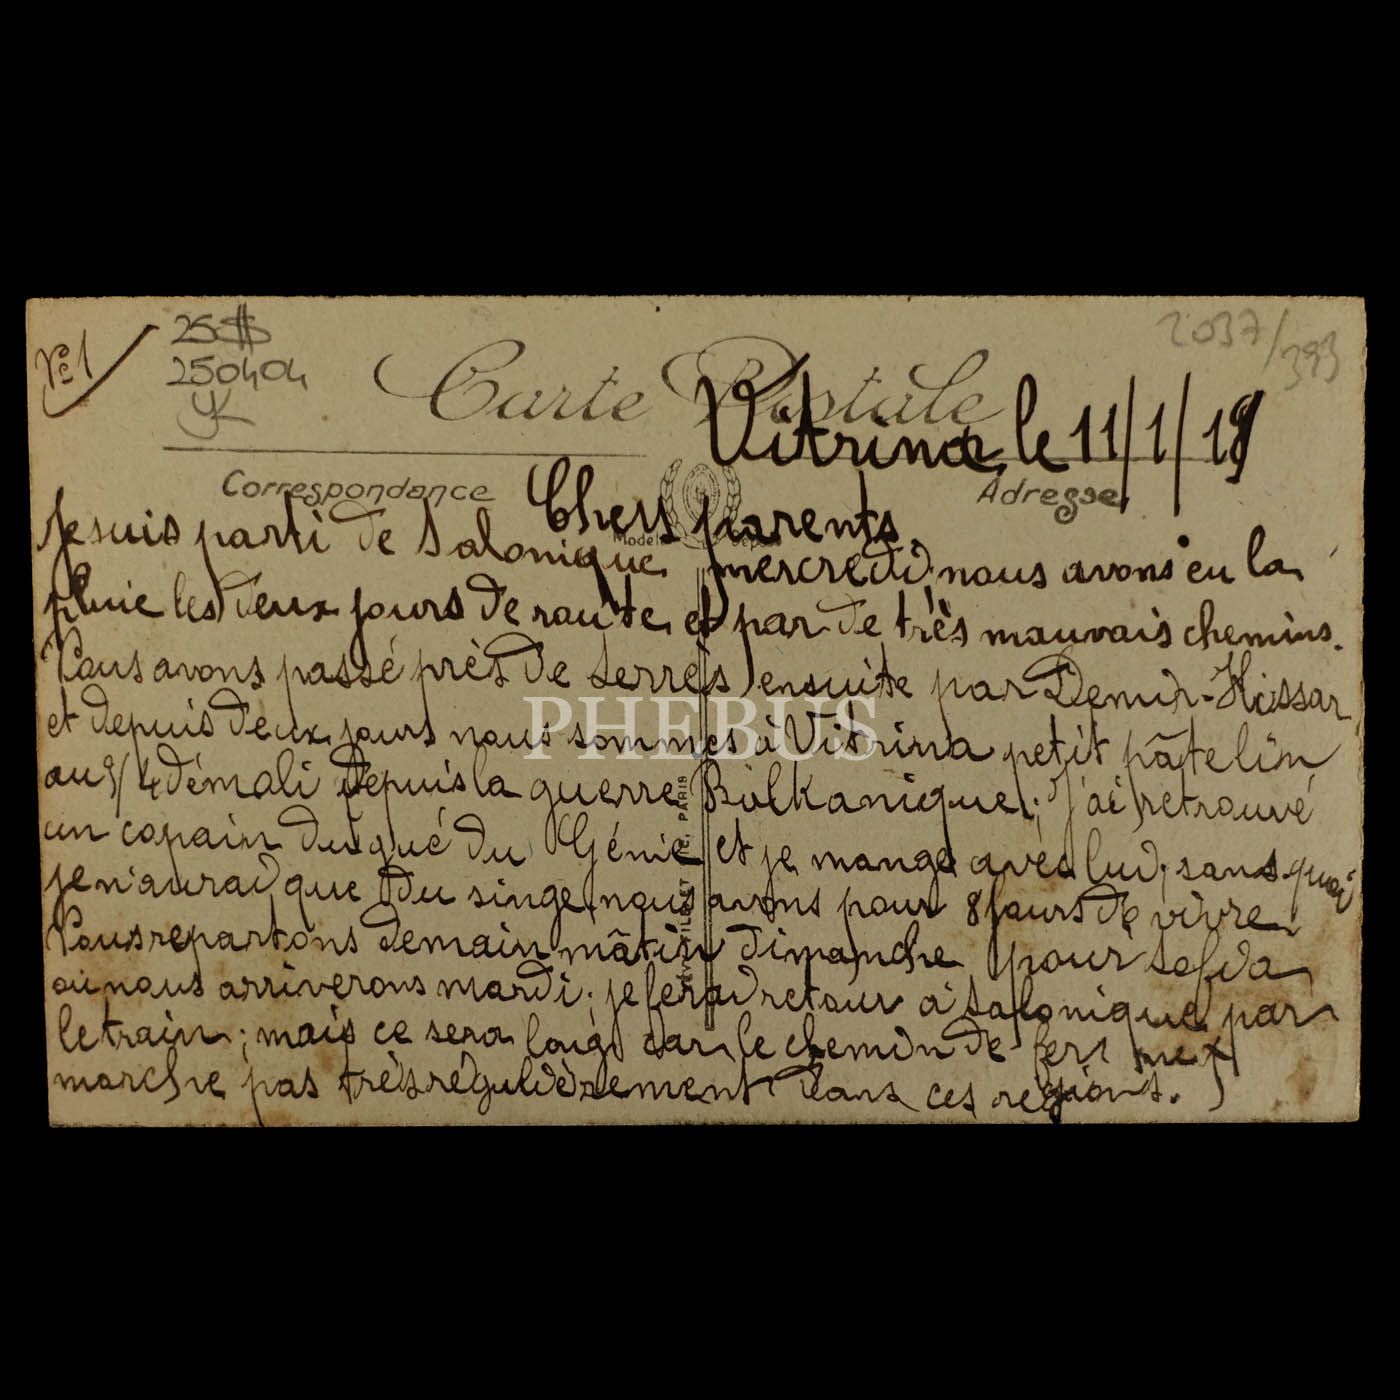 No 1
25$
250404
2037/393
Carte Postale
Vitrina le 11/1/19
Correspondance
Adresse
Chers parents
Modèle déposé
Je suis parti de Salonique mercredi, nous avons eu la
pluie les deux jours de route et par de très mauvais chemins.
Nous avons passé près de Serrès ensuite par Demir-Hissar
et depuis deux jours nous sommes à Vitrina petit pâtelin
au 3/4 démoli depuis la guerre Balkanique; j'ai retrouvé
un copain du gué du Génie et je mange avec lui; sans quoi
je n'aurai que du singe nous avons pour 8 jours de vivre
Nous repartons demain mâtin dimanche pour Sofia
où nous arriverons mardi; je ferai retour à Salonique par
le train; mais ce sera long car le chemin de fer ne
marche pas très régulièrement dans ces régions.
PHEBUS
PARIS